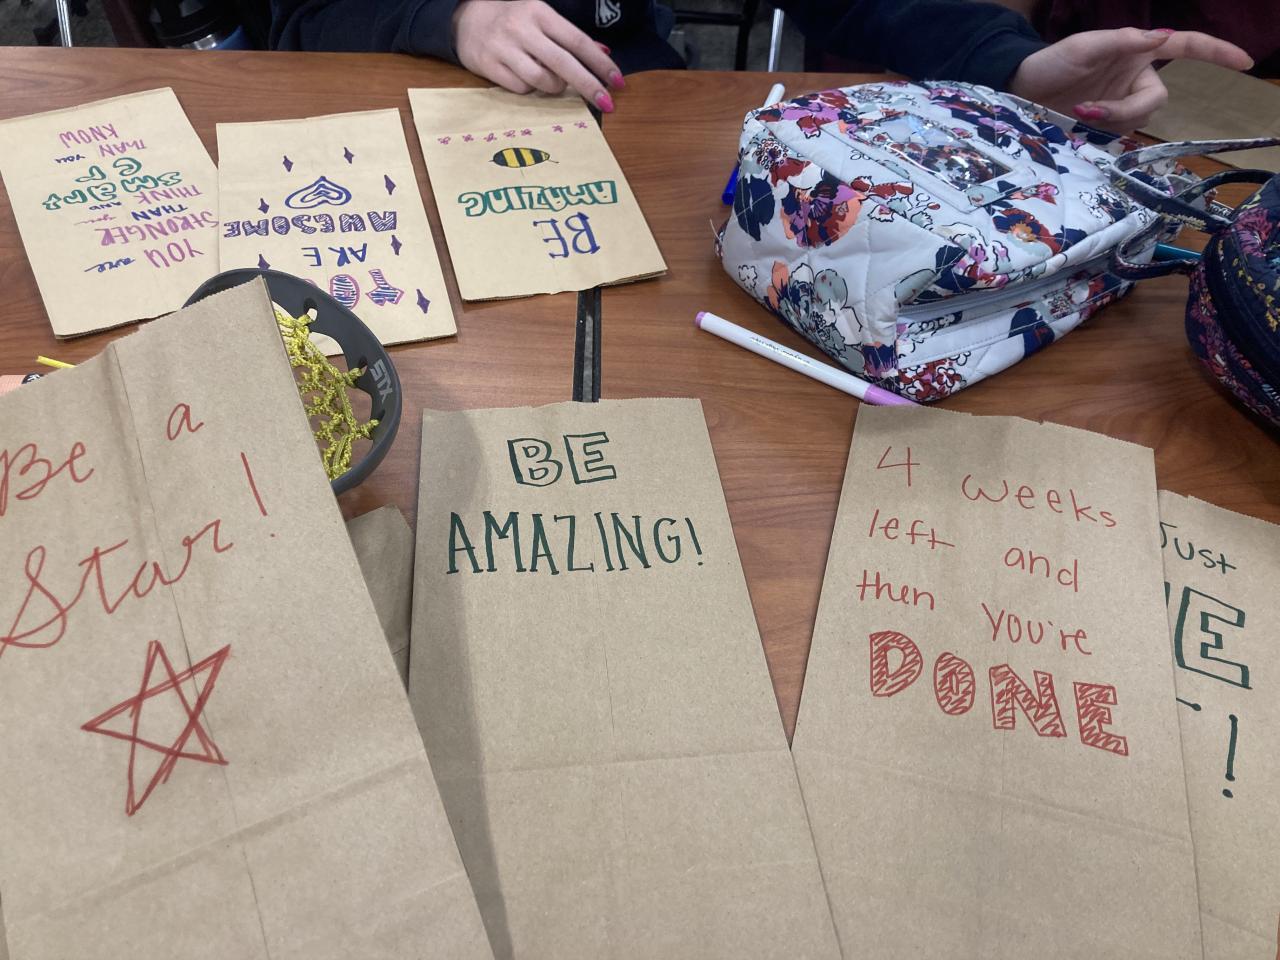 YOU are
STRONGER
THAN you
THINK AND
SMART
ER
THAN you
KNOW
YOU
ARE
AWESOME
BE
AMAZING
STX
Be a
Star!
BE
AMAZING!
4 weeks
left and
then you're
DONE
Just